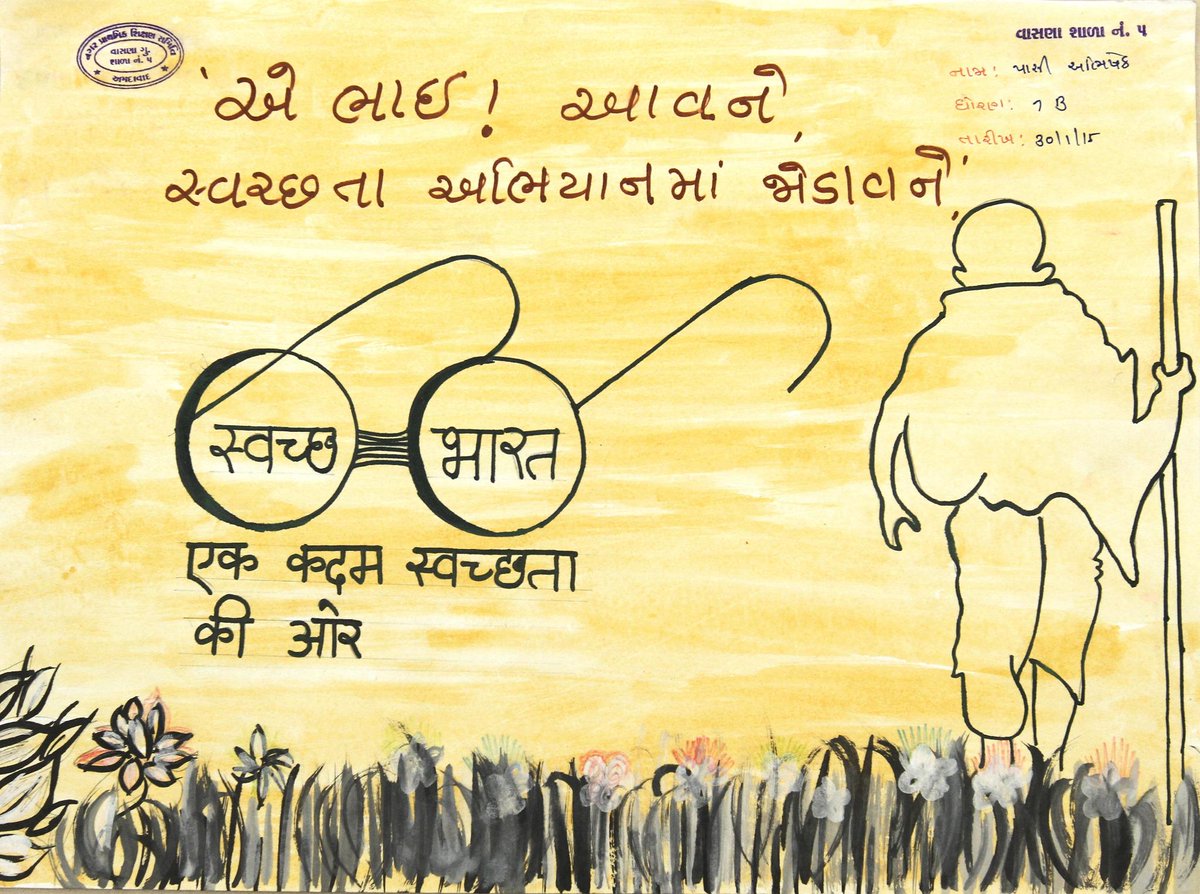 નગર પ્રાથમિક શિક્ષણ સમિતિ
વાસણા ગુ.
શાળા નં. ૫
અમદાવાદ
વાસણા શાળા નં. ૫
નામ: પાસી અભિષેક
ધોરણ: 7 B
તારીખ: ૩૦/૧/૧૫
'એ ભાઈ! આવને,
સ્વરછતા અભિયાનમાં જોડાવને,'
स्वच्छ भारत
एक कदम स्वच्छता
की ओर